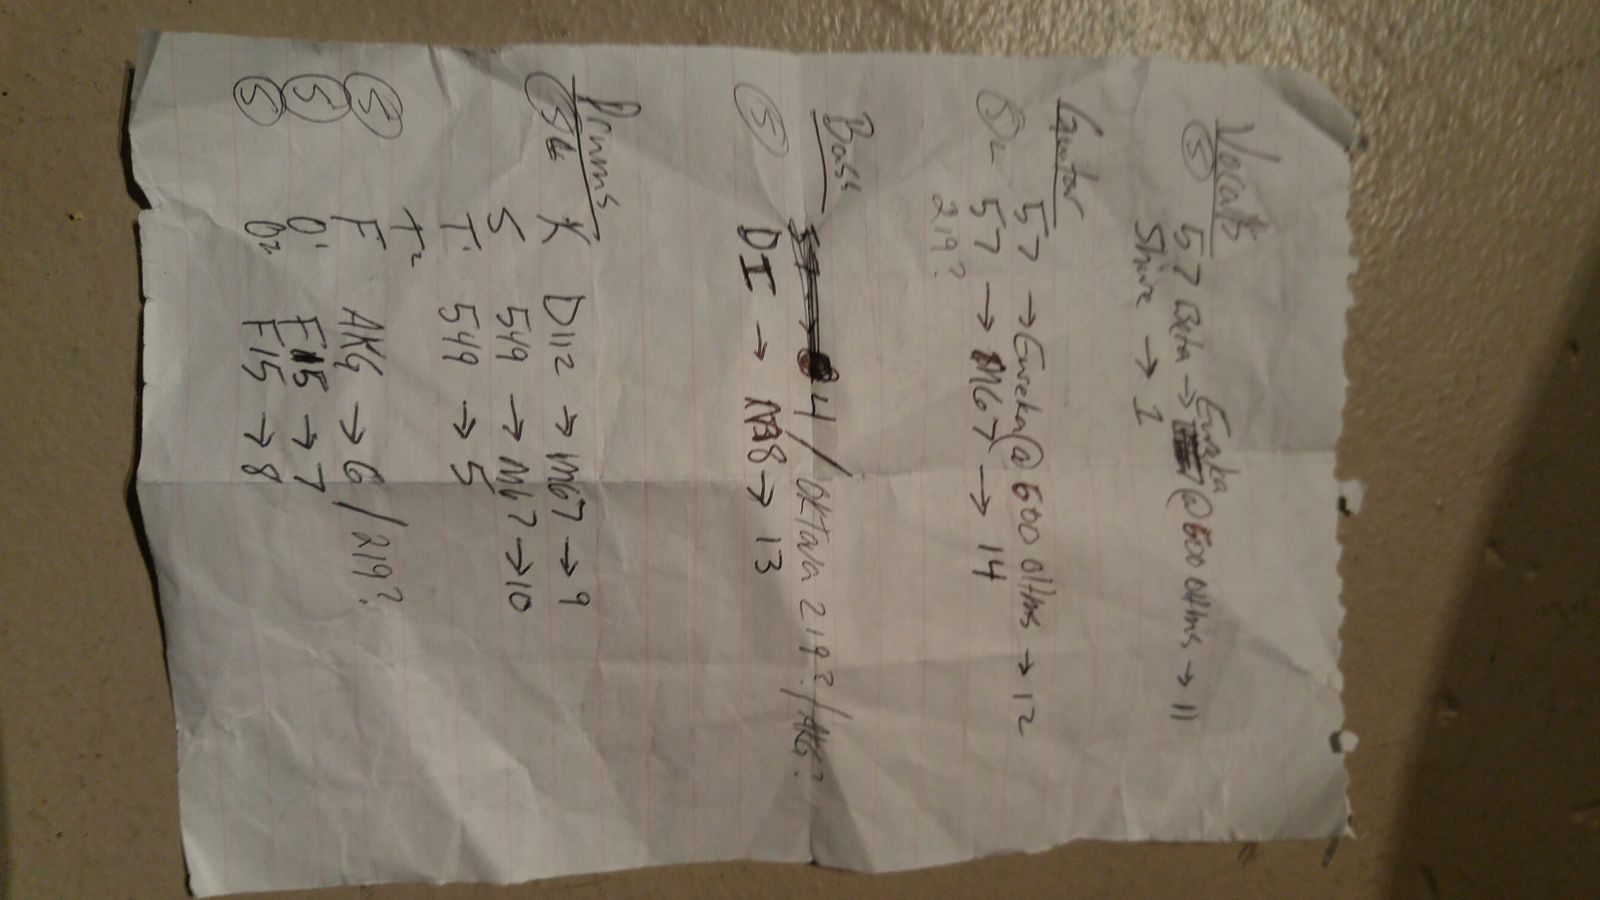 Vocals
(5) 57 Beta → Eureka @ 600 OHms → 11
Shure → 1
Guitar
57 → Eureka @ 600 OHms → 12
57 → M67 → 14
219?
Bass
4 / OKTava 219? / AKG?
(5) DI → → 13
Drums
K D112 → M67 → 9
S 549 → M67 → 10
T1 549 → 5
T2
(5) F AKG → 6 / 219?
(5) O1 F15 → 7
(5) O2 F15 → 8